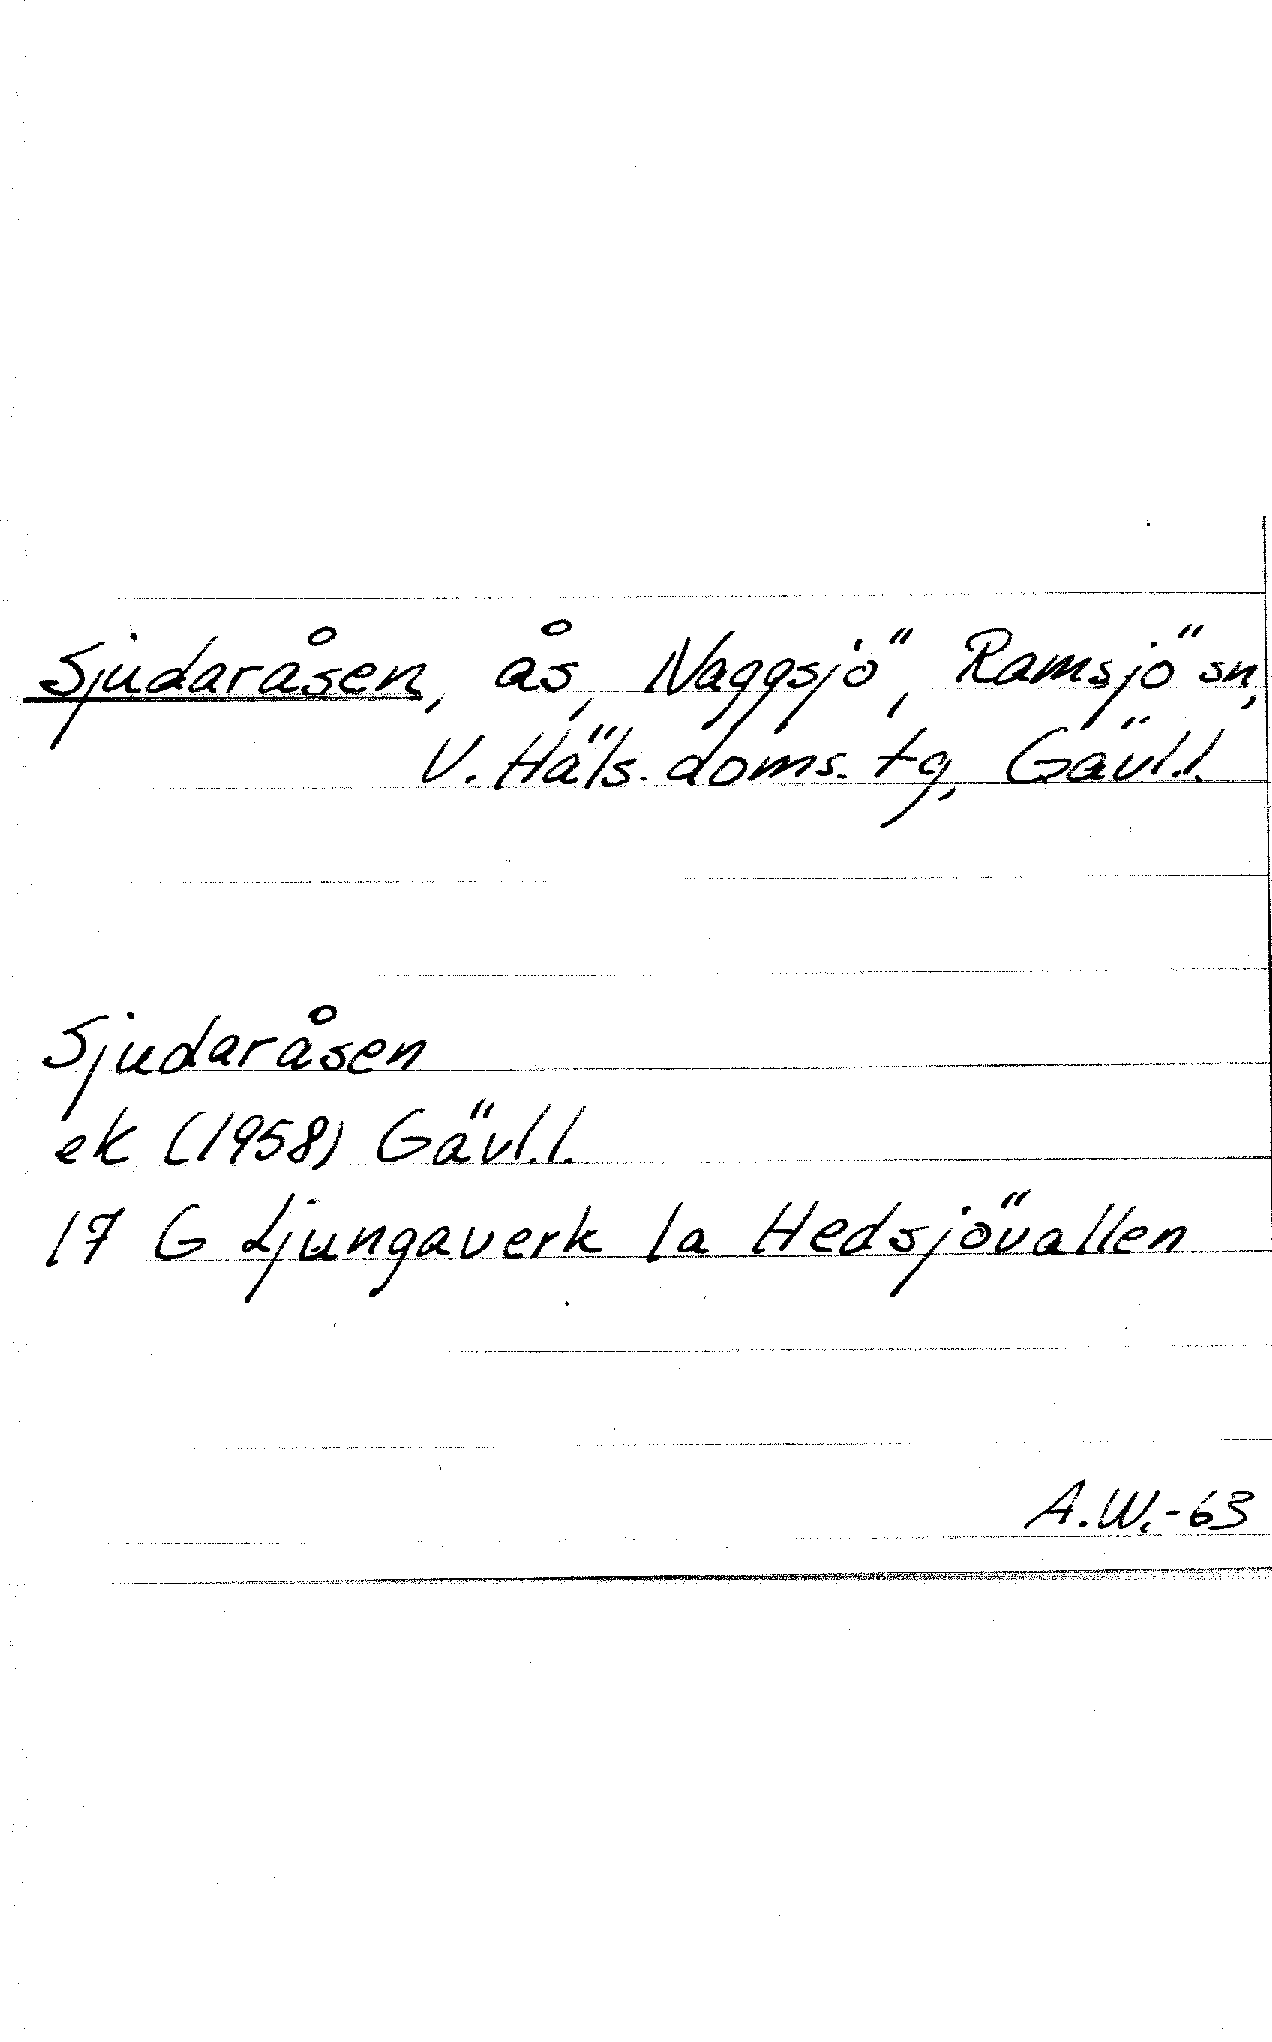 Sjudaråsen, ås, Naggsjö, Ramsjö sn,
V. Häls. doms. tg, Gävl.l.
Sjudaråsen
ek (1958) Gävl.l.
17 G Ljungaverk 1a Hedsjövallen
A.W.-63